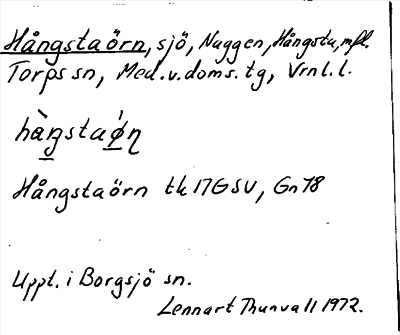 Hångstaörn, sjö, Naggen, Hångsta, mfl.
Torps sn, Med. v. doms. tg, Vrnl. l.
hàŋstaǿɳ
Hångstaörn tk 17G SV, Gn 78
Uppt. i Borgsjö sn.
Lennart Thunvall 1972.